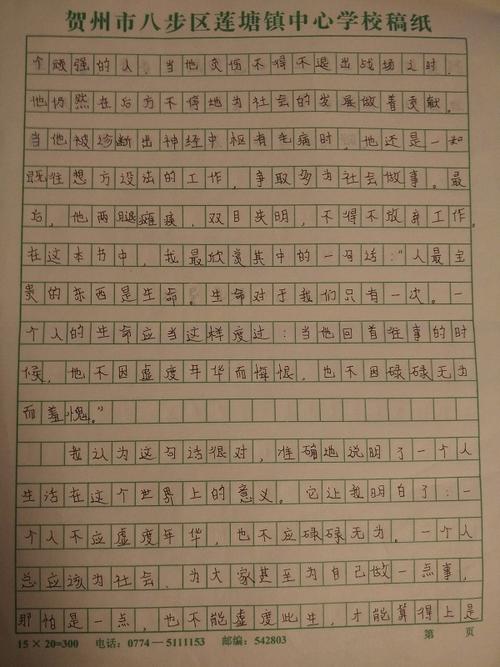 贺州市八步区莲塘镇中心学校稿纸
个顽强的人，当他负伤不得不退出战场之时，
他仍然在后方不停地为社会的发展做着贡献。
当他被诊断出神经中枢有毛病时，他还是一如
既往想方设法的工作，争取多为社会做事。最
后，他两腿瘫痪，双目失明，不得不放弃工作。
在这本书中，我最欣赏其中的一句话：“人最宝
贵的东西是生命。生命对于我们只有一次。一
个人的生命应当这样度过：当他回首往事的时
候，他不因虚度年华而悔恨，也不因碌碌无为
而羞愧。”
我认为这句话很对，准确地说明了一个人
生活在这个世界上的意义。它让我明白了：一
个人不应虚度年华，也不应碌碌无为。一个人
总应该为社会、为大家甚至为自己做一点事，
那怕是一点，也不能虚度此生，才能算得上是
15×20=300 电话：0774—5111153 邮编：542803 第 页